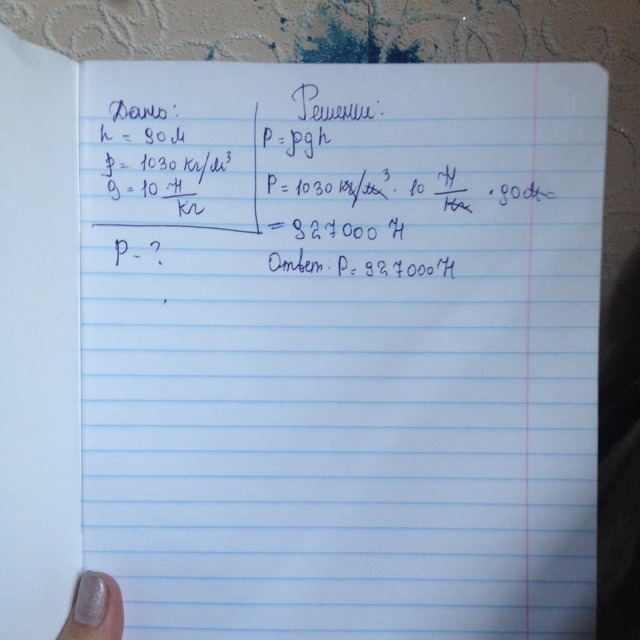 Дано:
h = 90м
ρ = 1030 кг/м³
g = 10 Н/кг
P - ?
Решение:
P = ρgh
P = 1030 кг/м³ · 10 Н/кг · 90м =
= 927000 Н
Ответ: P = 927000 Н